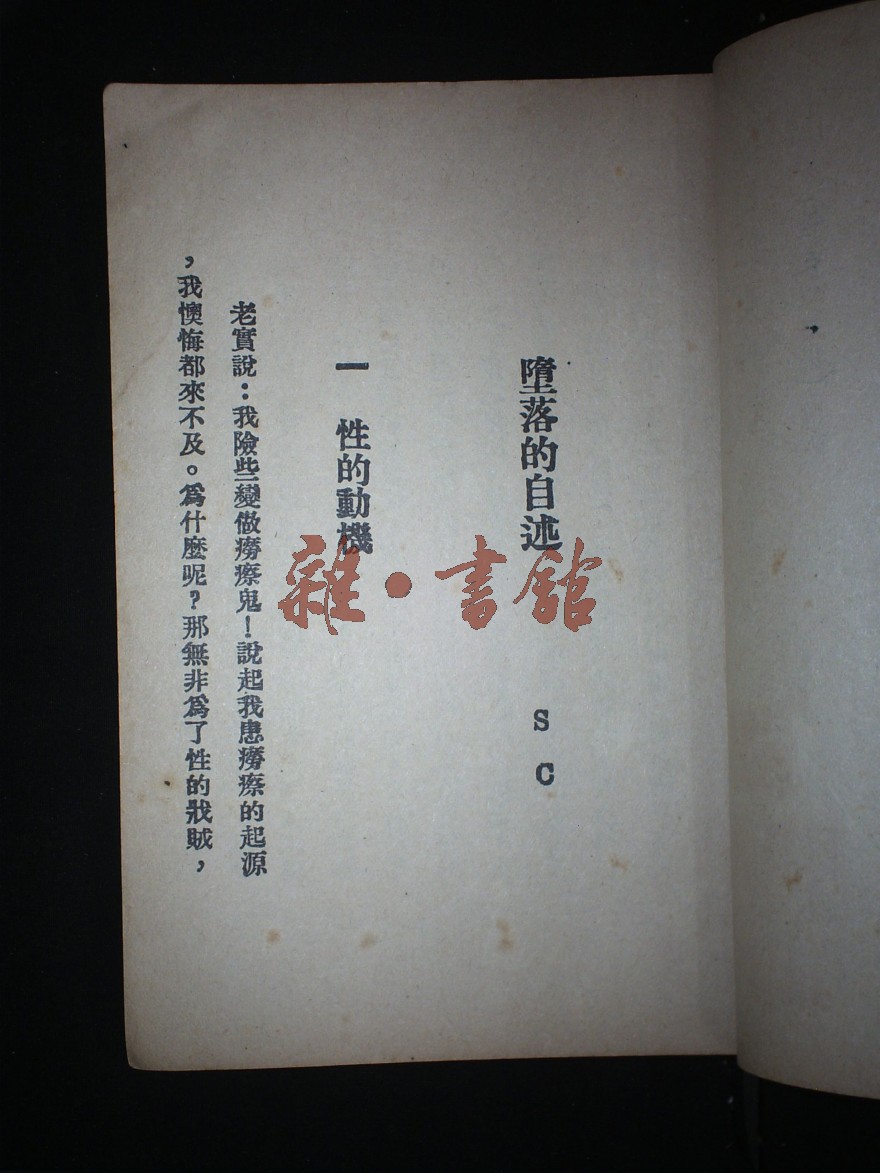 墮落的自述
S C
一 性的動機
老實說：我險些變做癆瘵鬼！說起我患癆瘵的起源
，我懊悔都來不及。爲什麼呢？那無非爲了性的戕賊，
雜·書館